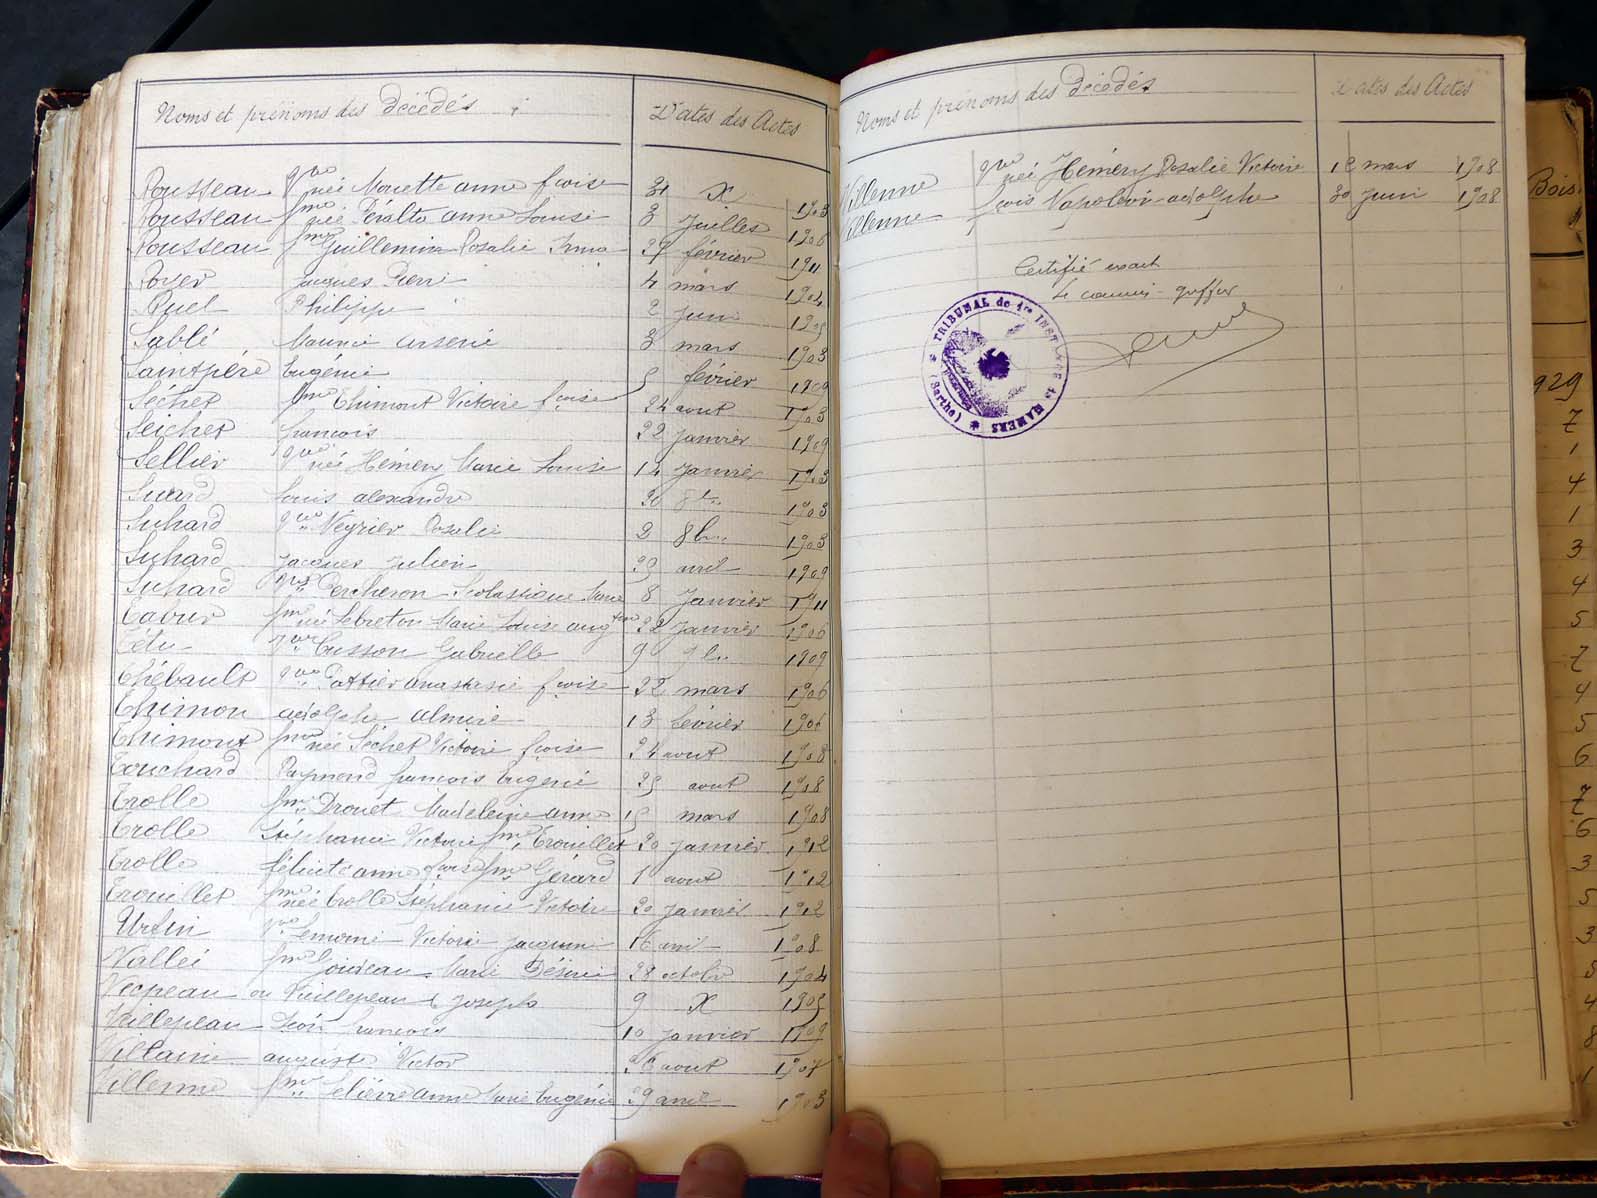 Noms et prénoms des Décédés
Dates des Actes
Rousseau vve née Mouette anne fcoise 31 X 1903
Rousseau fme née Péralta anne Louise 3 Juillet 1906
Rousseau fme Guillemin Rosalie Irma 27 février 1911
Royer Jacques Pierre 4 mars 1904
Ruel Philippe 2 juin 1905
Sablé Maurice arsène 3 mars 1903
Saintpère Eugénie 5 février 1909
Séchet fme Thimont Victoire fcoise 24 aout 1903
Seichet françois 22 janvier 1909
Sellier vve née Hémery Marie Louise 14 Janvier 1903
Suard Louis alexandre 20 8bre 1903
Suhard vve Végrier Rosalie 2 8bre 1903
Suhard Jacques Julien 29 avril 1909
Suhard vve Percheron Scolastique Marie 8 Janvier 1911
Tabur fme née Lebreton Marie Louise augtine 22 Janvier 1906
Tétu vve Cusson Gabrielle 9 9bre 1909
Thébault vve Pottier anastasie fcoise 22 mars 1906
Thimon adolphe almire 13 février 1906
Thimont fme née Séchet Victoire fcoise 24 aout 1908
Touchard Raymond françois Eugène 25 aout 1908
Trolle fme Drouet Madeleine anne 15 mars 1908
Trolle Stéphanie Victoire fme Trouillet 20 janvier 1912
Trolle félicité anne Louise fme Gérard 1 aout 1912
Trouillet fme née Trolle Stéphanie Victoire 20 janvier 1912
Urfin vve Lemoine Victoire Jacquine 16 avril 1908
Vallée fme Goudeau Marie Désirée 28 octobre 1904
Vecpeau ou Vieillepeau Joseph 9 X 1905
Vieillepeau Léon françois 10 janvier 1909
Villaine auguste Victor 26 aout 1907
Villenne fme Lelièvre anne Marie Eugénie 29 avril 1903
Noms et prénoms des Décédés
Dates des Actes
Villenne vve née Hémery Rosalie Victoire 12 mars 1908
Villenne fcois Napoléon adolphe 30 juin 1908
Certifié exact
Le commis-greffier
TRIBUNAL de 1re INSTANCE de MAMERS
(Sarthe)
Bois
929
7
1
4
1
3
4
5
7
4
5
6
7
6
3
5
3
5
4
8
1